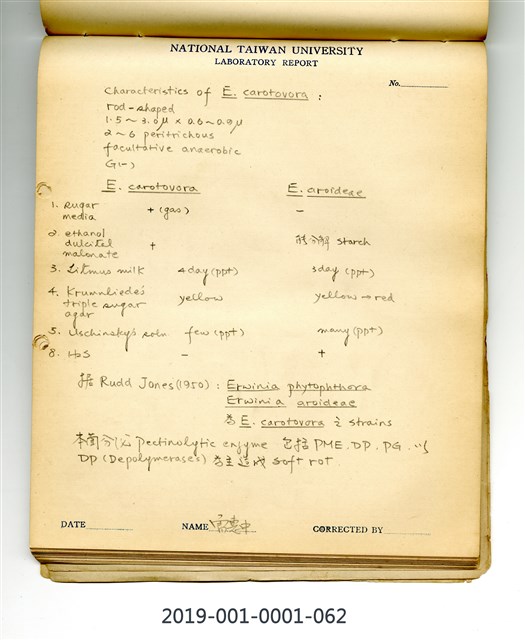 NATIONAL TAIWAN UNIVERSITY
LABORATORY REPORT
No.
Characteristics of E. carotovora :
rod-shaped
1.5~3.0μ × 0.6~0.9μ
2~6 peritrichous
facultative anaerobic
G(-)
E. carotovora E. aroideae
1. sugar media + (gas) -
2. ethanol dulcitol malonate + 分解 starch
3. Litmus milk 4 day (ppt) 3 day (ppt)
4. Krumwiede's triple sugar agar yellow yellow → red
5. Uschinsky's soln few (ppt) many (ppt)
8. H2S - +
據 Rudd Jones (1950) : Erwinia phytophthora
Erwinia aroideae
為 E. carotovora 之 strains
本菌分泌 Pectinolytic enzyme 包括 PME. DP. PG. 以
DP (Depolymerases) 為主造成 soft rot.
DATE NAME CORRECTED BY
2019-001-0001-062